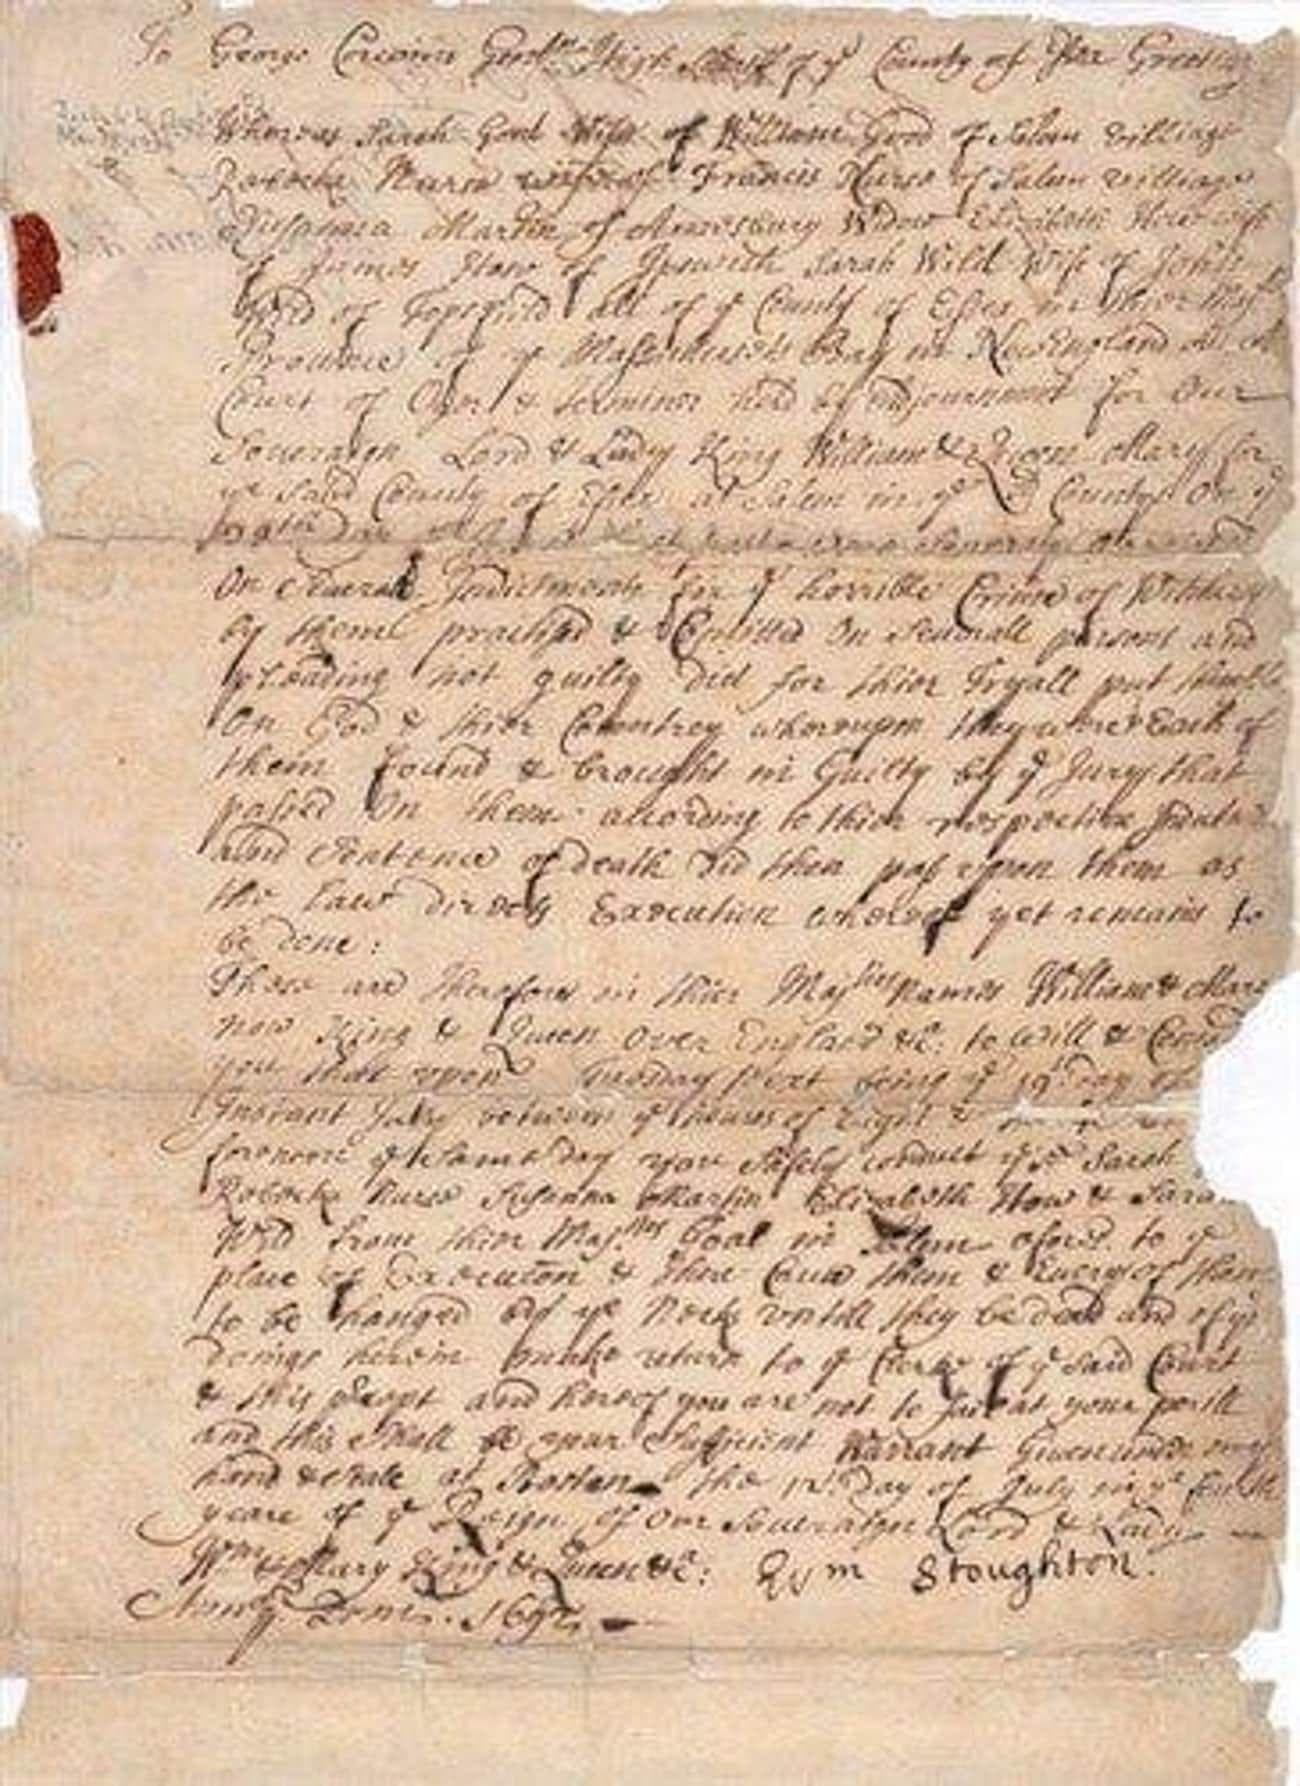 To George Corwine Gentlm High Sheriff of ye County of Essex Greeting
Whereas Sarah Good Wife of William Good of Salem Village
Rebecka Nurse wife of Francis Nurse of Salem Village
Susanna Martin of Amesbury Widow Elizabeth How wife
of James How of Ipswich Sarah Wild Wife of John
Wild of Topsfield all of ye County of Essex in thier Majties
Province of ye Massachusetts Bay in New England Att A
Court of Oyer & Terminer held by Adjournment for Our
Soveraign Lord & Lady King William & Queen Mary for
ye said County of Essex at Salem in ye sd County On ye
day
On Severall Indictments for ye horrible Crime of Witchcraft
by them practised & Comitted On Severall persons and
pleading not guilty did for thier Tryall put themselves
On God & thier Countrey whereupon they were Each of
them found & brought in Guilty by ye Jury that
passed On them according to thier respective Indictments
and Sentence of death did then pass upon them as
the Law directs Execution whereof yet remains to
be done:
These are Therefore in thier Majties names William & Mary
now King & Queen over England &c: to Will & Comand
you that upon Tuesday next being ye 19th day of
Instant July between ye houres of Eight &
forenoon ye same day you Safely conduct ye sd Sarah
Rebecka Nurse Susanna Martin Elizabeth How & Sarah
Wild from thier Majties Goal in Salem aforesd to ye
place of Execution & there Cause them & Every of them
to be hanged by ye Necks untill they be dead and of yr
doings herein make return to ye Clerke of ye said Court
& this precept and hereof you are not to fail at your perill
and this Shall be your Sufficient Warrant Given under my
hand & seale at Boston the 12th day of July in ye fourth
yeare of ye Reign of Our Soveraigne Lord & Lady
Wm & Mary King & Queen &c: Wm Stoughton.
Annoq Dom. 1692